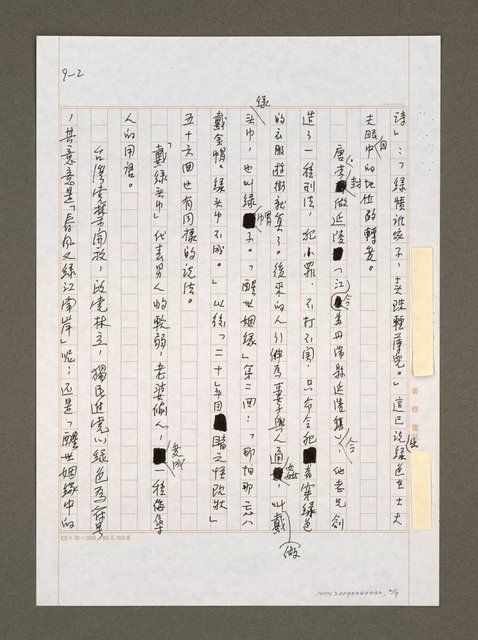 9-2
詩」:「綠幘誰家子,賣珠輕薄兒。」這已說出綠色在士大
夫眼中自的地位的轉變。
唐李封做延陵(江今
丹陽縣延陵鎮)令,他老兄創
造了一種刑法,犯小罪,不打不關,只命令犯者穿綠色
的衣服遊街就算了。後來的人引伸為妻子與人通姦,叫戴
綠頭巾,也叫做綠帽子。「醒世姻緣」第二回:「那怕那忘八
戴金帽、綠頭巾不成。」以後「二十年目睹之怪現狀」
五十六回也有同樣的說法。
「戴綠頭巾」代表男人的軟弱,老婆偷人,變成一種侮辱
人的用語。
台灣黨禁開放,政黨林立,獨民進黨以綠色為
,其意是「春風又綠江南岸」呢,還是「醒世姻緣中的
25×10=300 86.5.100本